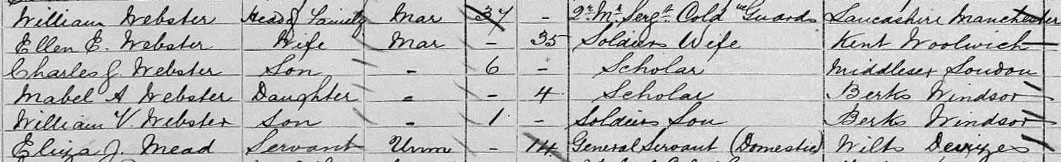 William Webster Head of Family Mar 37 - Qr. Mr. Sergt. Cold. Guards Lancashire Manchester
Ellen E. Webster Wife Mar - 35 Soldiers Wife Kent Woolwich
Charles J. Webster Son - 6 - Scholar Middlesex London
Mabel A Webster Daughter - - 4 Scholar Berks Windsor
William V. Webster Son - 1 - Soldiers Son Berks Windsor
Eliza J. Mead Servant Unm - 14 General Servant (Domestic) Wilts Devizes